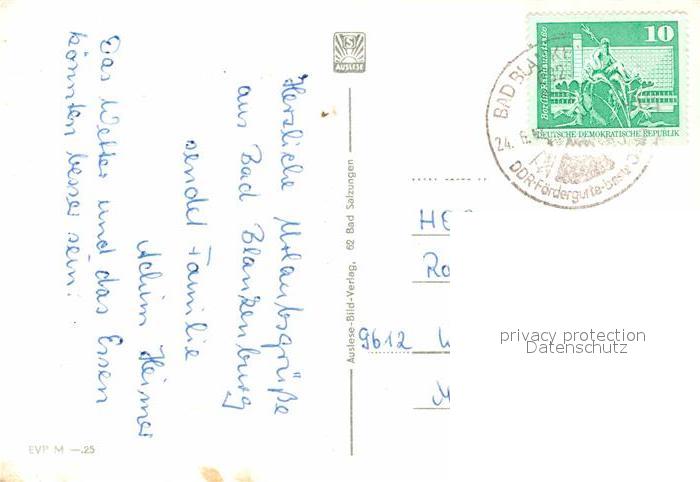 Herzliche Urlaubsgrüße
aus Bad Blankenburg
sendet Familie
Achim Heimer
Das Wetter und das Essen
könnten besser sein!
EVP M —.25
AUSLESE
Auslese-Bild-Verlag, 62 Bad Salzungen
10
Berlin-Rathausstraße
DEUTSCHE DEMOKRATISCHE REPUBLIK
BAD BLANKE
24. 6.
DDR-Fördergurte-
HE
Ro
9612
privacy protection
Datenschutz